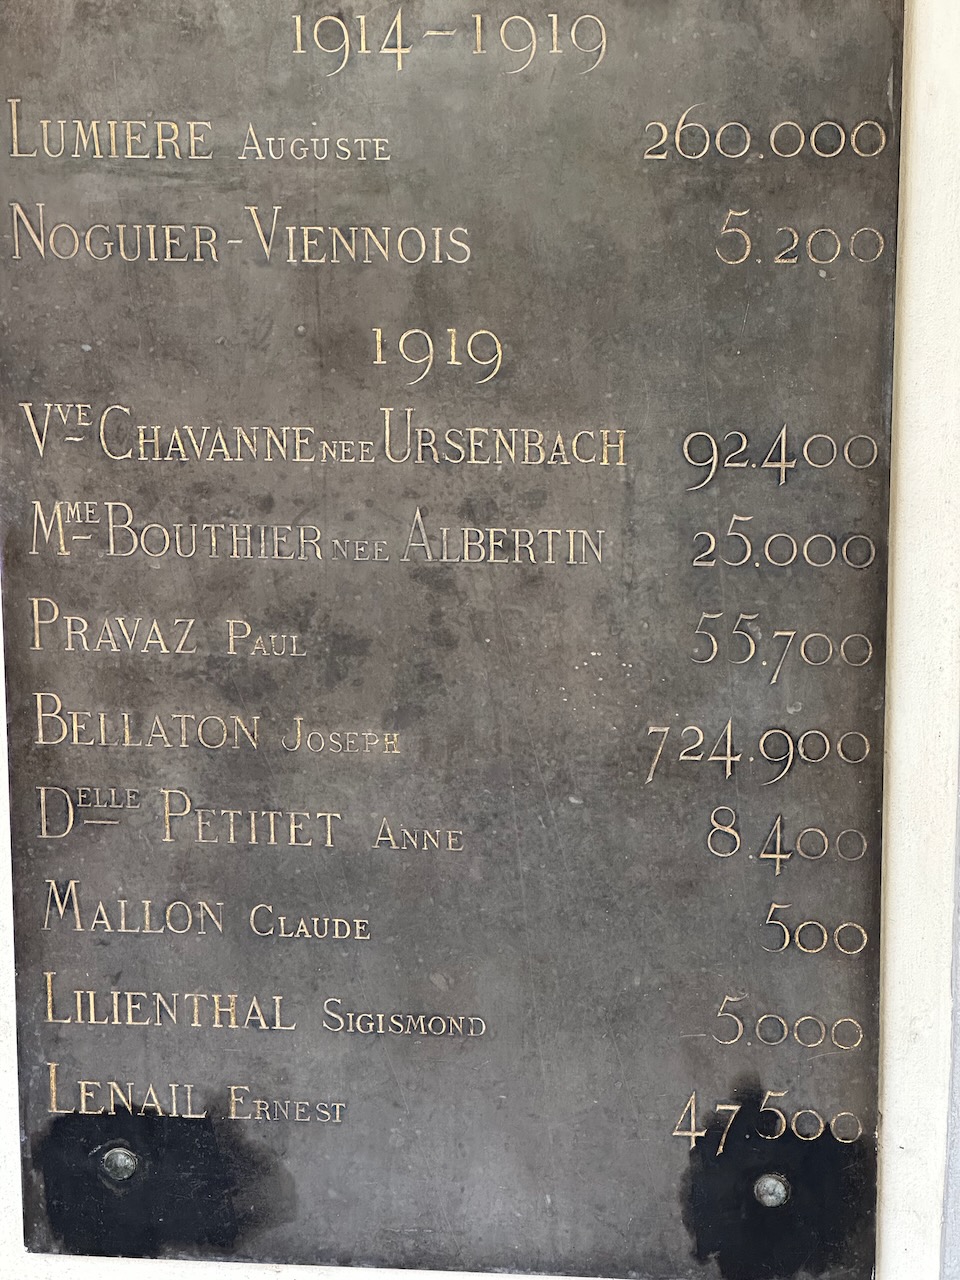 1914-1919
LUMIERE AUGUSTE 260.000
NOGUIER-VIENNOIS 5.200
1919
VVE CHAVANNE NEE URSENBACH 92.400
MME BOUTHIER NEE ALBERTIN 25.000
PRAVAZ PAUL 55.700
BELLATON JOSEPH 724.900
DELLE PETITET ANNE 8.400
MALLON CLAUDE 500
LILIENTHAL SIGISMOND 5.000
LENAIL ERNEST 47.500